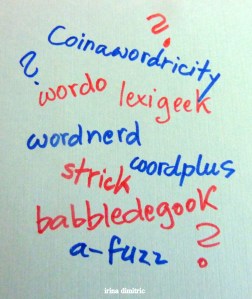 ?
Coinawordricity
?
wordo lexigeek
wordnerd
wordplus
strick
babbledegook
a-fuzz ?
irina dimitric